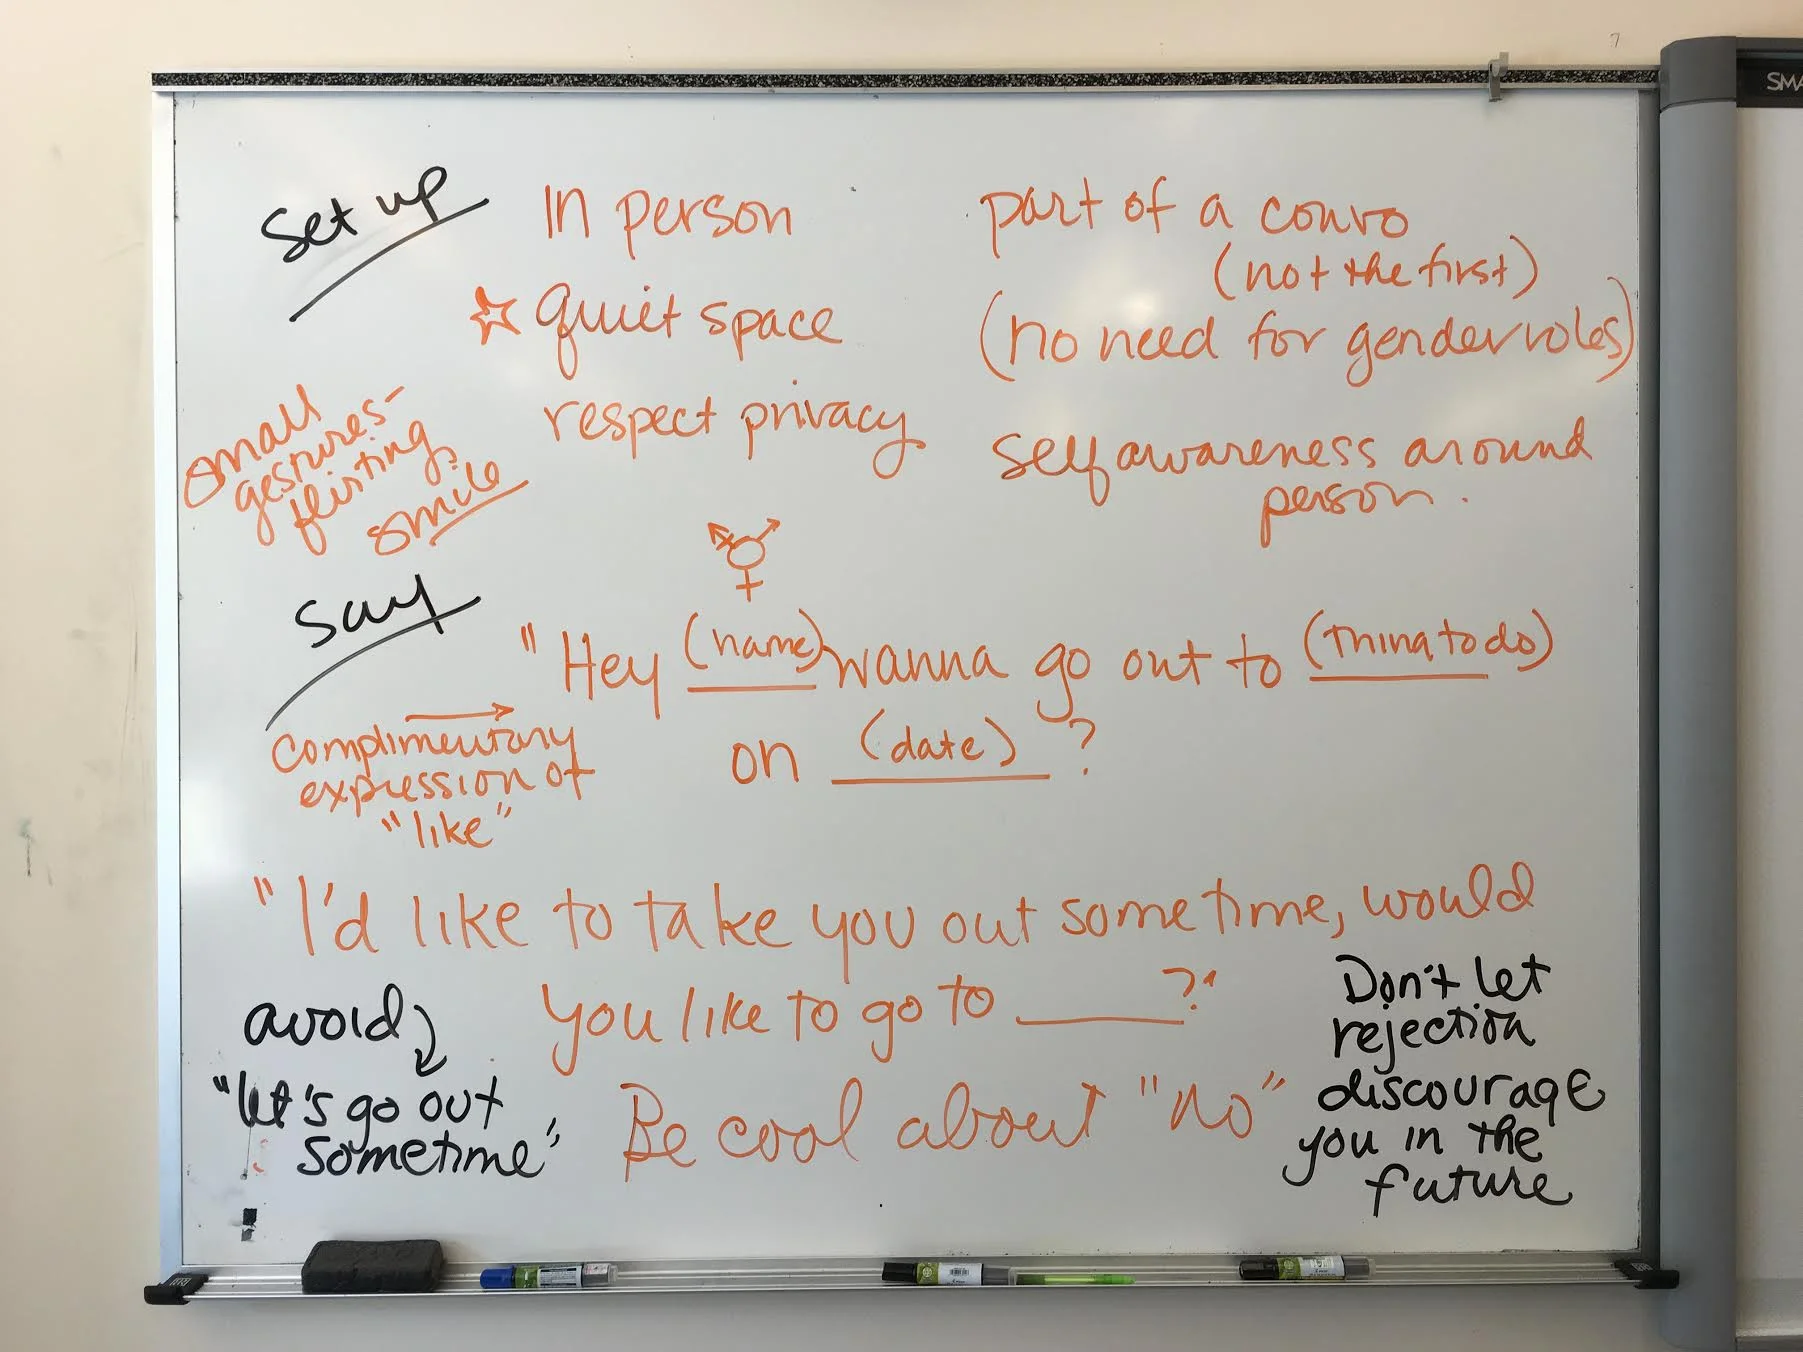 Set up
In person
☆ quiet space
respect privacy
part of a convo
(not the first)
(no need for gender roles)
self awareness around
person.
small
gestures-
flirting,
smile
Say
"Hey (name) wanna go out to (thing to do)
on (date) ?
complimentary
expression of
"like"
"I'd like to take you out sometime, would
you like to go to ______?"
avoid
"let's go out
sometime"
Be cool about "no"
Don't let
rejection
discourage
you in the
future
SMA